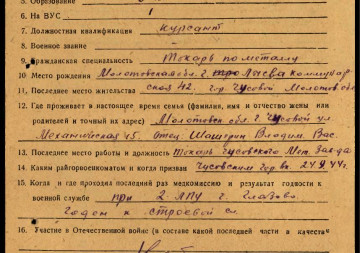 5. Образование
6. На ВУС 1
7. Должностная квалификация курсант
8. Военное звание —
9. Гражданская специальность Токарь по металу
10 Место рождения Молотовская обл. г. Лысьва Коммунар
11. Последнее место жительства ская 42. гор Чусовой Молотов обл
12. Где проживает в настоящее время семья (фамилия, имя и отчество жены или
родителей и точный их адрес) Молотовск обл. г. Чусовой ул
Механическая 45. Отец. Владим. Вас.
13. Последнее место работы и должность Токарь Чусовского Мет. завода
14. Каким райгорвоенкоматом и когда призван Чусовским гор вк. 24.9.44г.
15. Когда и где проходил последний раз медкомиссию и результат годности к
военной службе при 2 ЛПУ г. Глазов
Годен к строевой сл.
16. Участие в Отечественной войне (в составе какой последней части в качестве